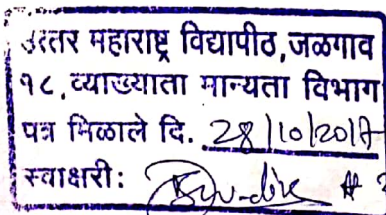 उत्तर महाराष्ट्र विद्यापीठ,जळगाव
१८,व्याख्याता मान्यता विभाग
पत्र मिळाले दि. 28/10/2017
स्वाक्षरी: